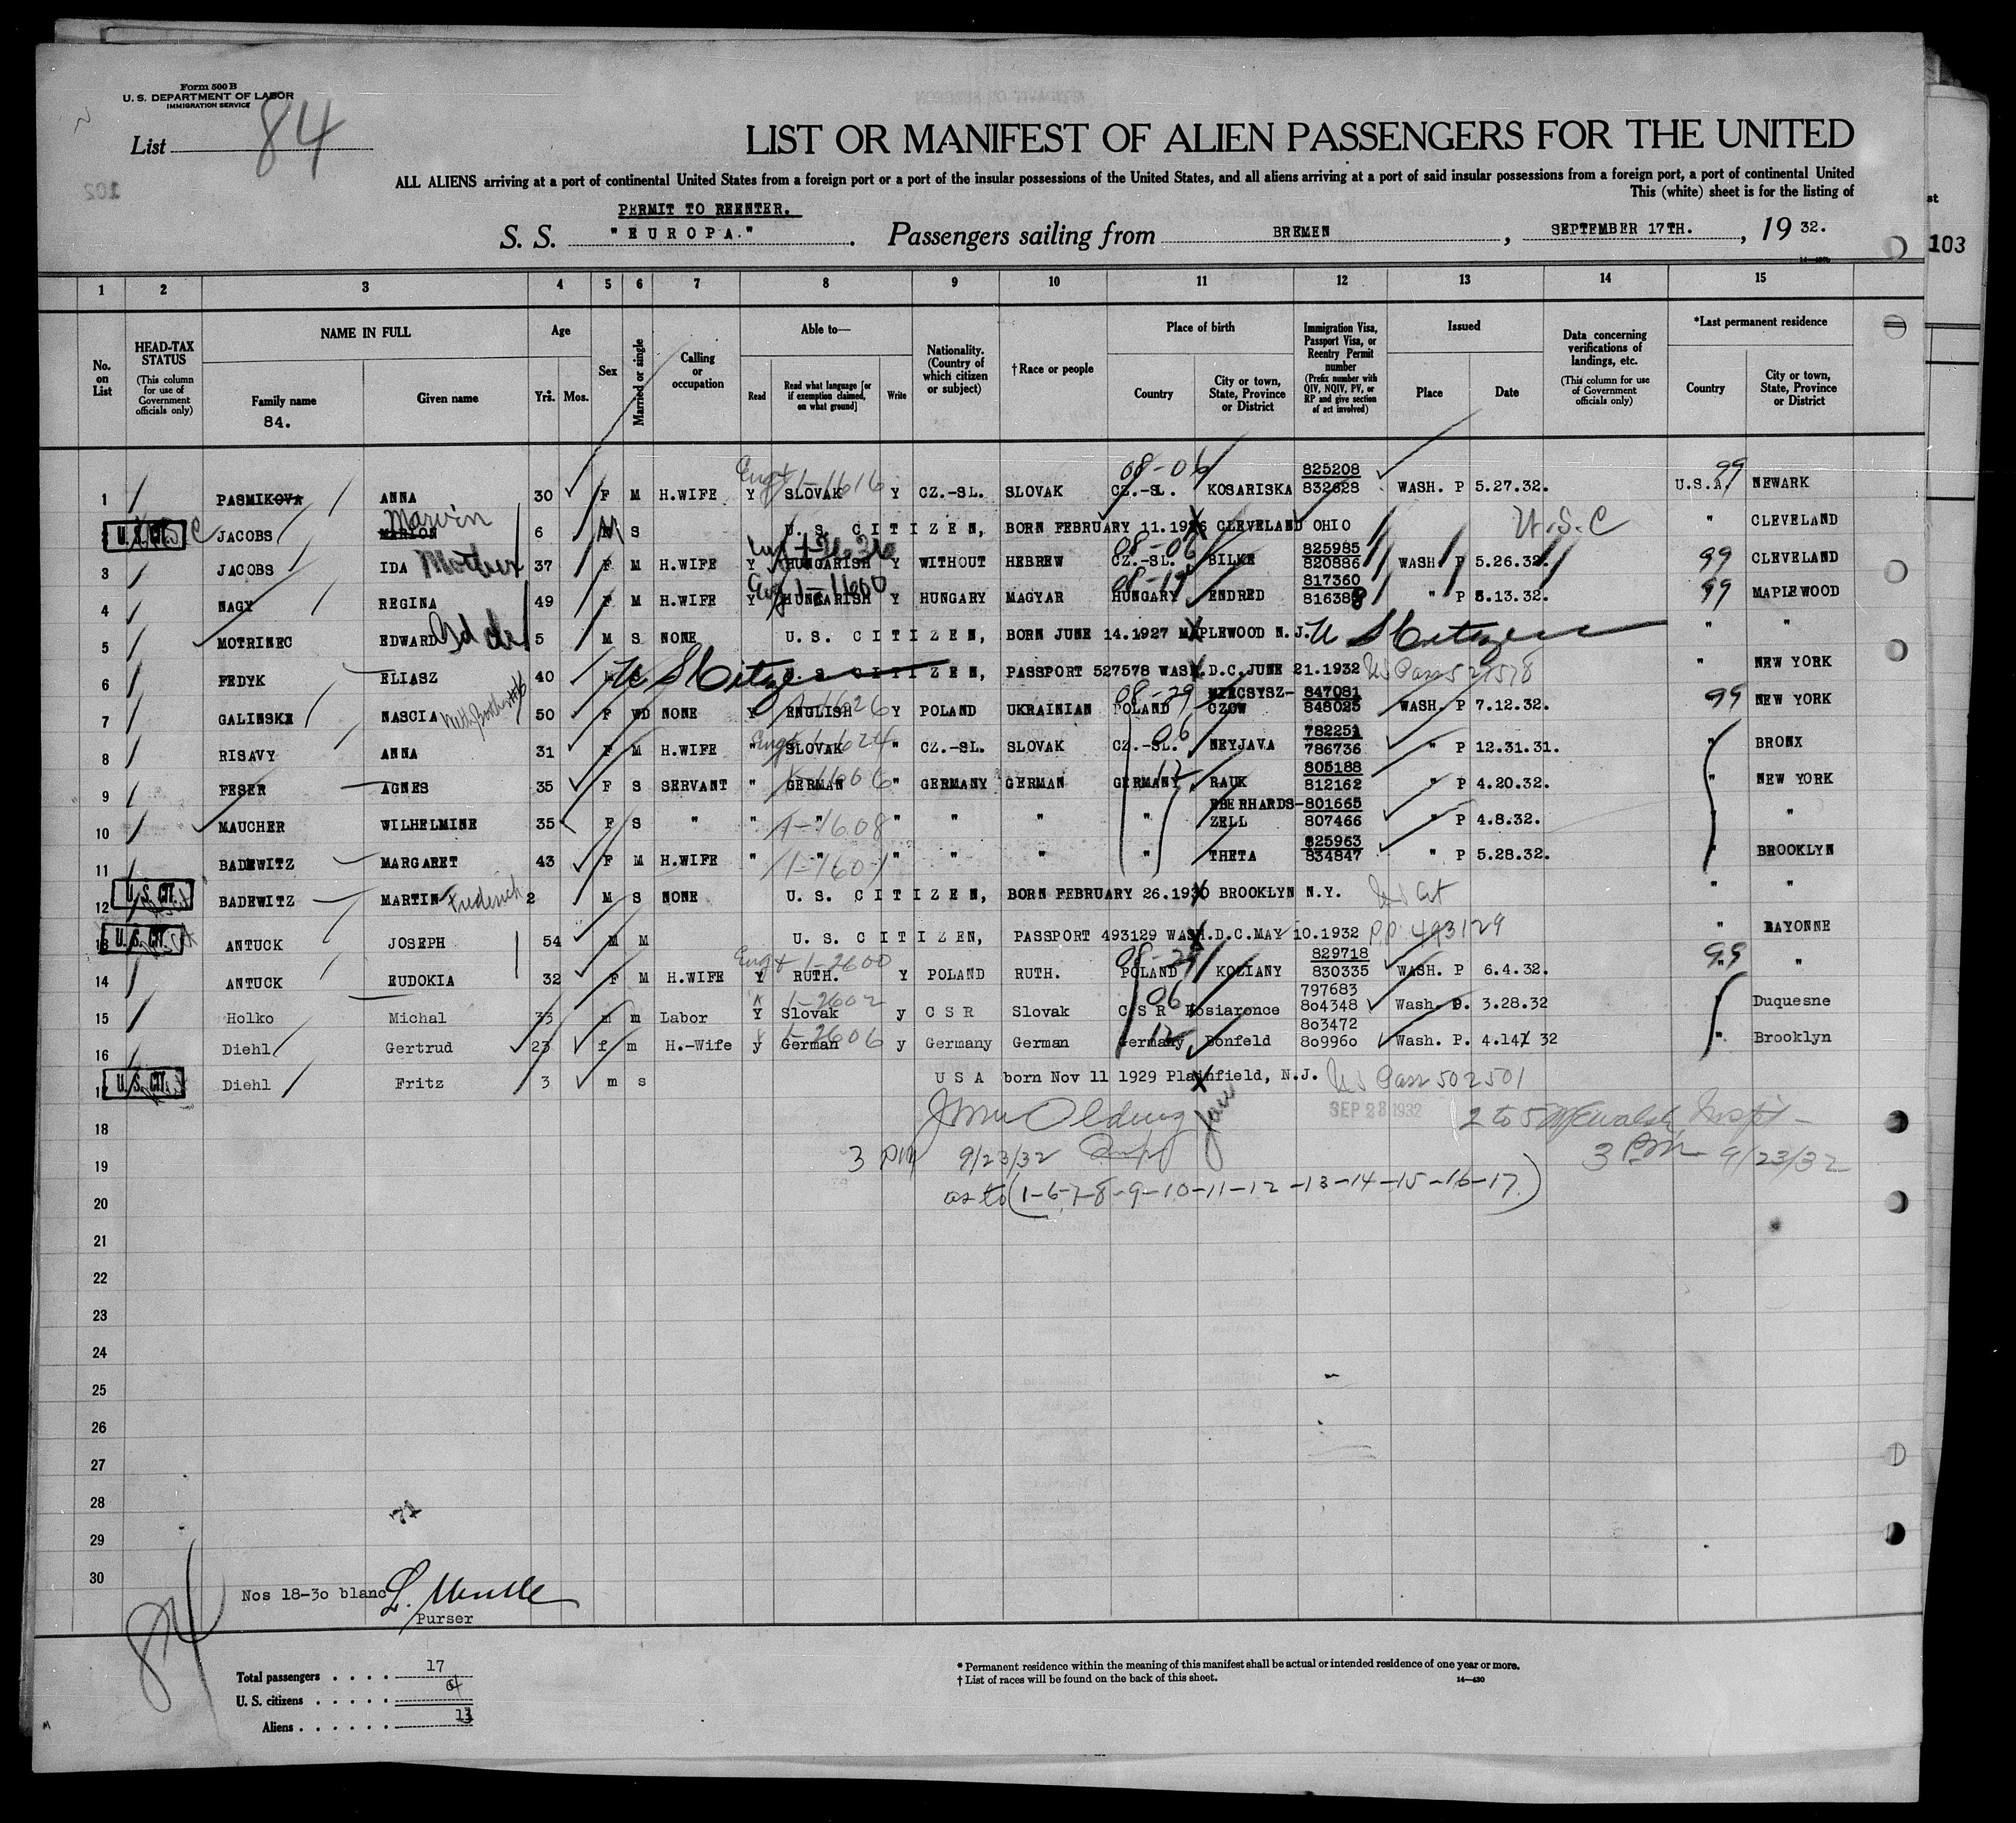 Form 500 B
U. S. DEPARTMENT OF LABOR
IMMIGRATION SERVICE
List 84
LIST OR MANIFEST OF ALIEN PASSENGERS FOR THE UNITED
ALL ALIENS arriving at a port of continental United States from a foreign port or a port of the insular possessions of the United States, and all aliens arriving at a port of said insular possessions from a foreign port, a port of continental United
This (white) sheet is for the listing of
PERMIT TO REENTER.
S. S. "EUROPA." Passengers sailing from BREMEN, SEPTEMBER 17TH., 1932.
st
103
102
1 2 3 4 5 6 7 8 9 10 11 12 13 14 15
No. on List
HEAD-TAX STATUS
(This column for use of Government officials only)
NAME IN FULL
Family name
84.
Given name
Age
Yrs. Mos.
Sex
Married or single
Calling or occupation
Able to—
Read
Read what language [or if exemption claimed, on what ground]
Write
Nationality. (Country of which citizen or subject)
† Race or people
Place of birth
Country
City or town, State, Province or District
Immigration Visa, Passport Visa, or Reentry Permit number
(Prefix number with QIV, NQIV, PV, or RP and give section of act involved)
Issued
Place
Date
Data concerning verifications of landings, etc.
(This column for use of Government officials only)
*Last permanent residence
Country
City or town, State, Province or District
Eng + 1-1616 08-06 825208 99
1 PASMIKOVA ANNA 30 F M H.WIFE Y SLOVAK Y CZ.-SL. SLOVAK CZ.-SL. KOSARISKA 832628 WASH. P 5.27.32. U.S.A. NEWARK
Marvin
U. S. CIT. JACOBS MARION 6 M S U. S. CITIZEN, BORN FEBRUARY 11.1926 CLEVELAND OHIO U.S.C " CLEVELAND
08-06 825985
3 JACOBS IDA Mother 37 F M H.WIFE Y HUNGARISH Y WITHOUT HEBREW CZ.-SL. BILKE 820886 WASH P 5.26.32. 99 CLEVELAND
Eng 1-1600 817360
4 NAGY REGINA 49 F M H.WIFE Y HUNGARISH Y HUNGARY MAGYAR HUNGARY ENDRED 816388 " P 5.13.32. 99 MAPLEWOOD
5 MOTRINEC EDWARD 5 M S NONE U.S. CITIZEN, BORN JUNE 14.1927 MAPLEWOOD N.J. U S Citizen " "
6 FEDYK ELIASZ 40 M U S Citizen U.S. CITIZEN, PASSPORT 527578 WASH.D.C.JUNE 21.1932 US Pass 527578 " NEW YORK
08-29 MIECSYSZ- 847081
7 GALINSKE NASCIA 50 F WD NONE Y ENGLISH Y POLAND UKRAINIAN POLAND CZOW 848025 WASH. P 7.12.32. 99 NEW YORK
Eng + 1-1624 06 782251
8 RISAVY ANNA 31 F M H.WIFE " SLOVAK " CZ.-SL. SLOVAK CZ.-SL. NEYJAVA 786736 " P 12.31.31. " BRONX
1-1606 12 805188
9 FESER AGNES 35 F S SERVANT " GERMAN " GERMANY GERMAN GERMANY RAUK 812162 " P 4.20.32. " NEW YORK
EBERHARDS- 801665
10 MAUCHER WILHELMINE 35 F S " " 1-1608 " " " " ZELL 807466 " P 4.8.32. "
825963
11 BADEWITZ MARGARET 43 F M H.WIFE " " 1-1601 " " " " THETA 834847 " P 5.28.32. " BROOKLYN
U. S. CIT.
12 BADEWITZ MARTIN Frederich 2 M S NONE U.S. CITIZEN, BORN FEBRUARY 26.1930 BROOKLYN N.Y. US Cit " "
U. S. CIT.
13 ANTUCK JOSEPH 54 M M U.S. CITIZEN, PASSPORT 493129 WASH.D.C.MAY 10.1932 P.P. 493129 " BAYONNE
Eng + 1-2600 08-29 829718 99
14 ANTUCK EUDOKIA 32 F M H.WIFE Y RUTH. Y POLAND RUTH. POLAND KOZIANY 830335 WASH. P 6.4.32. " "
1-2602 06 797683
15 Holko Michal 33 m m Labor Y Slovak y C S R Slovak C S R Kosiaronce 804348 Wash. P. 3.28.32 " Duquesne
1-2606 12 803472
16 Diehl Gertrud 23 f m H.-Wife y German y Germany German Germany Bonfeld 809960 Wash. P. 4.14 32 " Brooklyn
U. S. CIT.
17 Diehl Fritz 3 m s U S A born Nov 11 1929 Plainfield, N.J. US Pass 502501
SEP 23 1932
18
2 to 5
19 3 PM 9/23/32
3 PM 9/23/32
20 as to (1-6-7-8-9-10-11-12-13-14-15-16-17)
21
22
23
24
25
26
27
28
29
30
Nos 18-30 blanc
Purser
84
Total passengers . . . . 17
U. S. citizens . . . . . 4
Aliens . . . . . . 13
* Permanent residence within the meaning of this manifest shall be actual or intended residence of one year or more.
† List of races will be found on the back of this sheet.
14—430